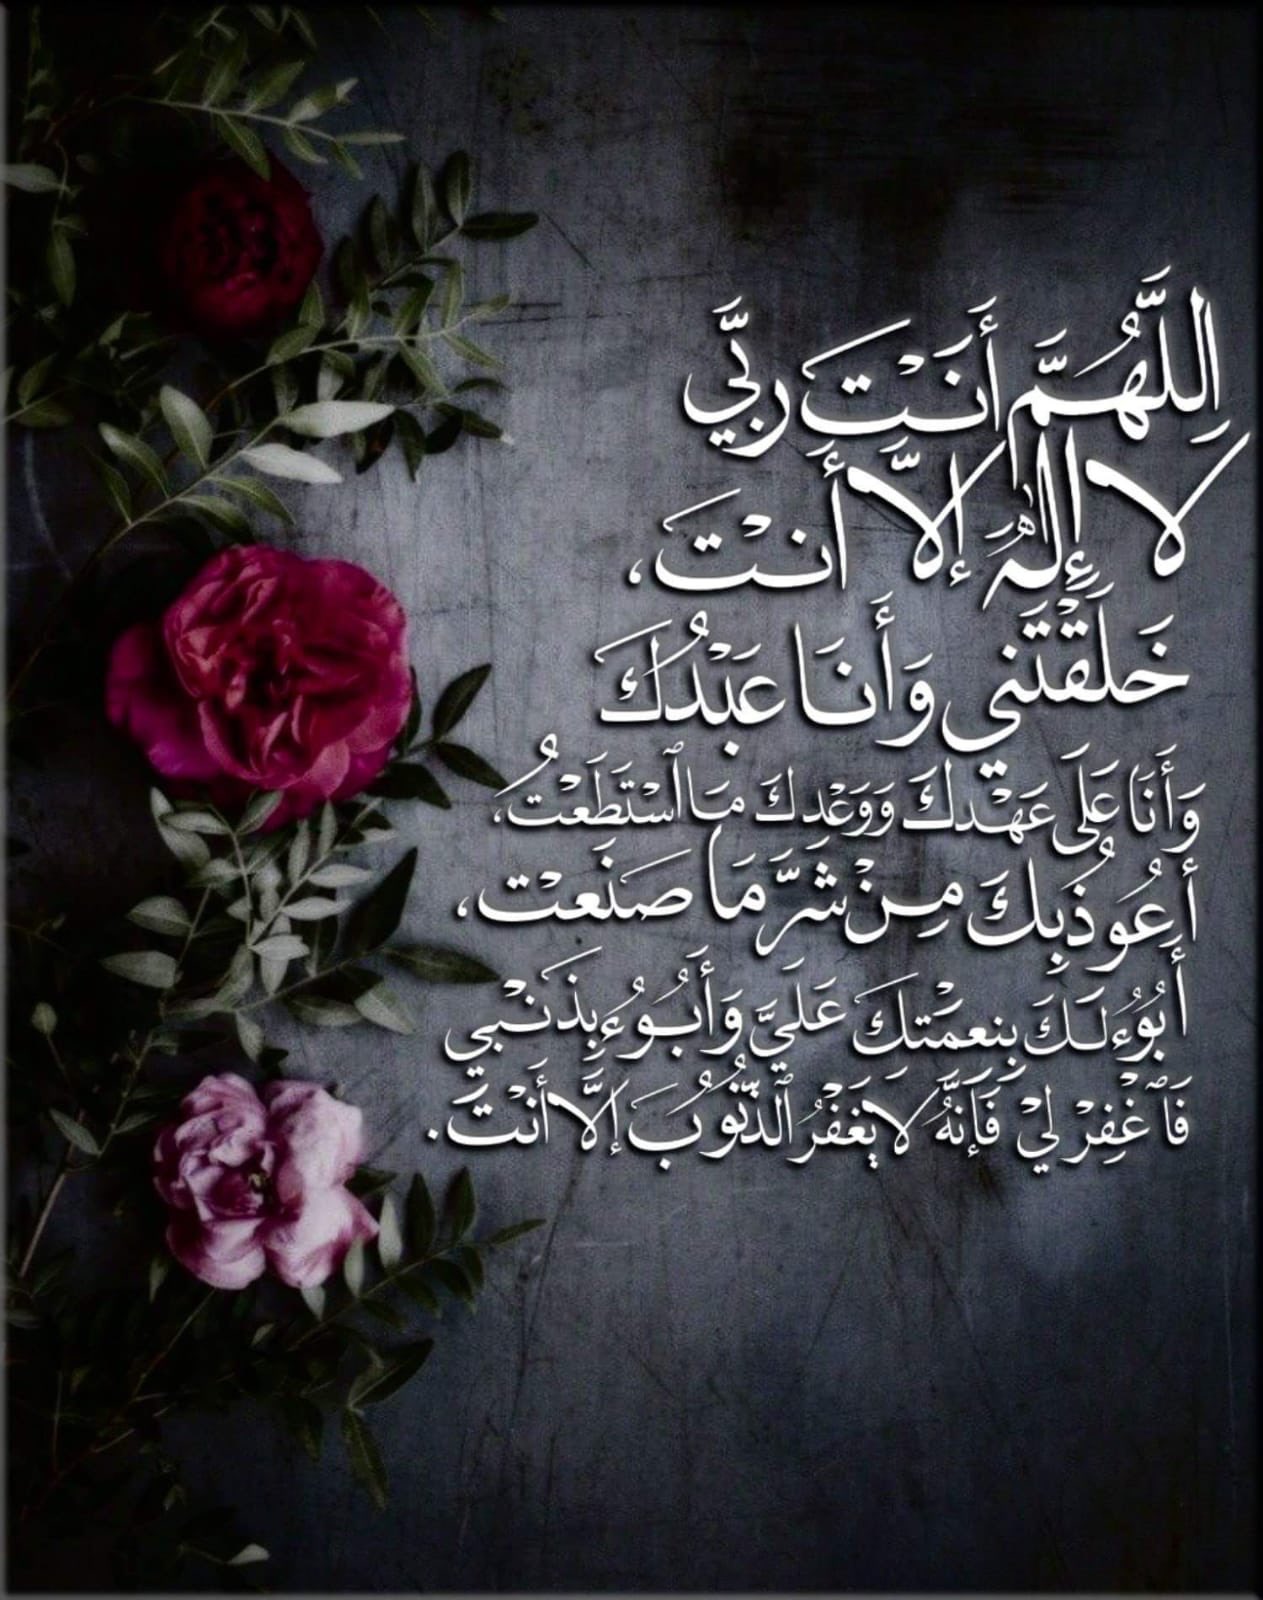 اِللَّهُمَّ أَنْتَ رَبِّي
لا إِلٰهُ إلاَّ أَنْتَ،
خَلَقْتَنِي وَأَنَا عَبْدُكَ
وَأَنَا عَلَى عَهْدِكَ وَوَعْدِكَ مَا ٱسْتَطَعْتُ،
أَعُوذُ بِكَ مِنْ شَرِّ مَا صَنَعْت،
أَبُوءُ لَكَ بِنِعْمَتِكَ عَلَيَّ وَأَبُوءُ بِذَنْبِي
فَٱغْفِرْ لِيْ فَإِنَّهُ لا يَغْفِرُ ٱلذُّنُوبَ إلَّا أَنْتَ.